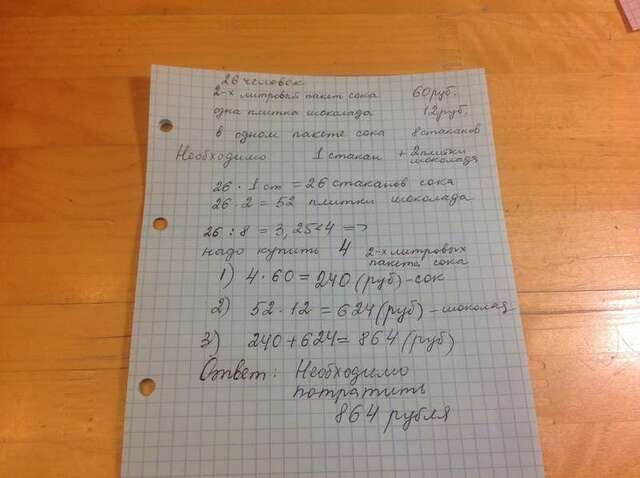 26 человек
2-х литровый пакет сока 60 руб.
одна плитка шоколада 12 руб.
в одном пакете сока 8 стаканов
Необходимо 1 стакан + 2 плитки
шоколада
26 · 1 ст = 26 стаканов сока
26 · 2 = 52 плитки шоколада
26 : 8 = 3,25 < 4 =>
надо купить 4 2-х литровых
пакета сока
1) 4 · 60 = 240 (руб) - сок
2) 52 · 12 = 624 (руб) - шоколад
3) 240 + 624 = 864 (руб)
Ответ: Необходимо
потратить
864 рубля